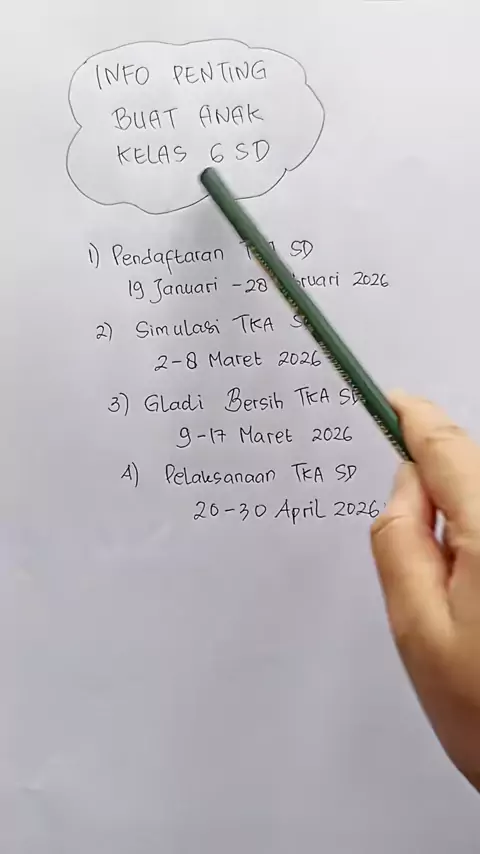 INFO PENTING
BUAT ANAK
KELAS 6 SD
1) Pendaftaran SD
19 Januari - 28 2026
2) Simulasi TKA
2-8 Maret 2026
3) Gladi Bersih TKA SD
9-17 Maret 2026
4) Pelaksanaan TKA SD
20-30 April 2026